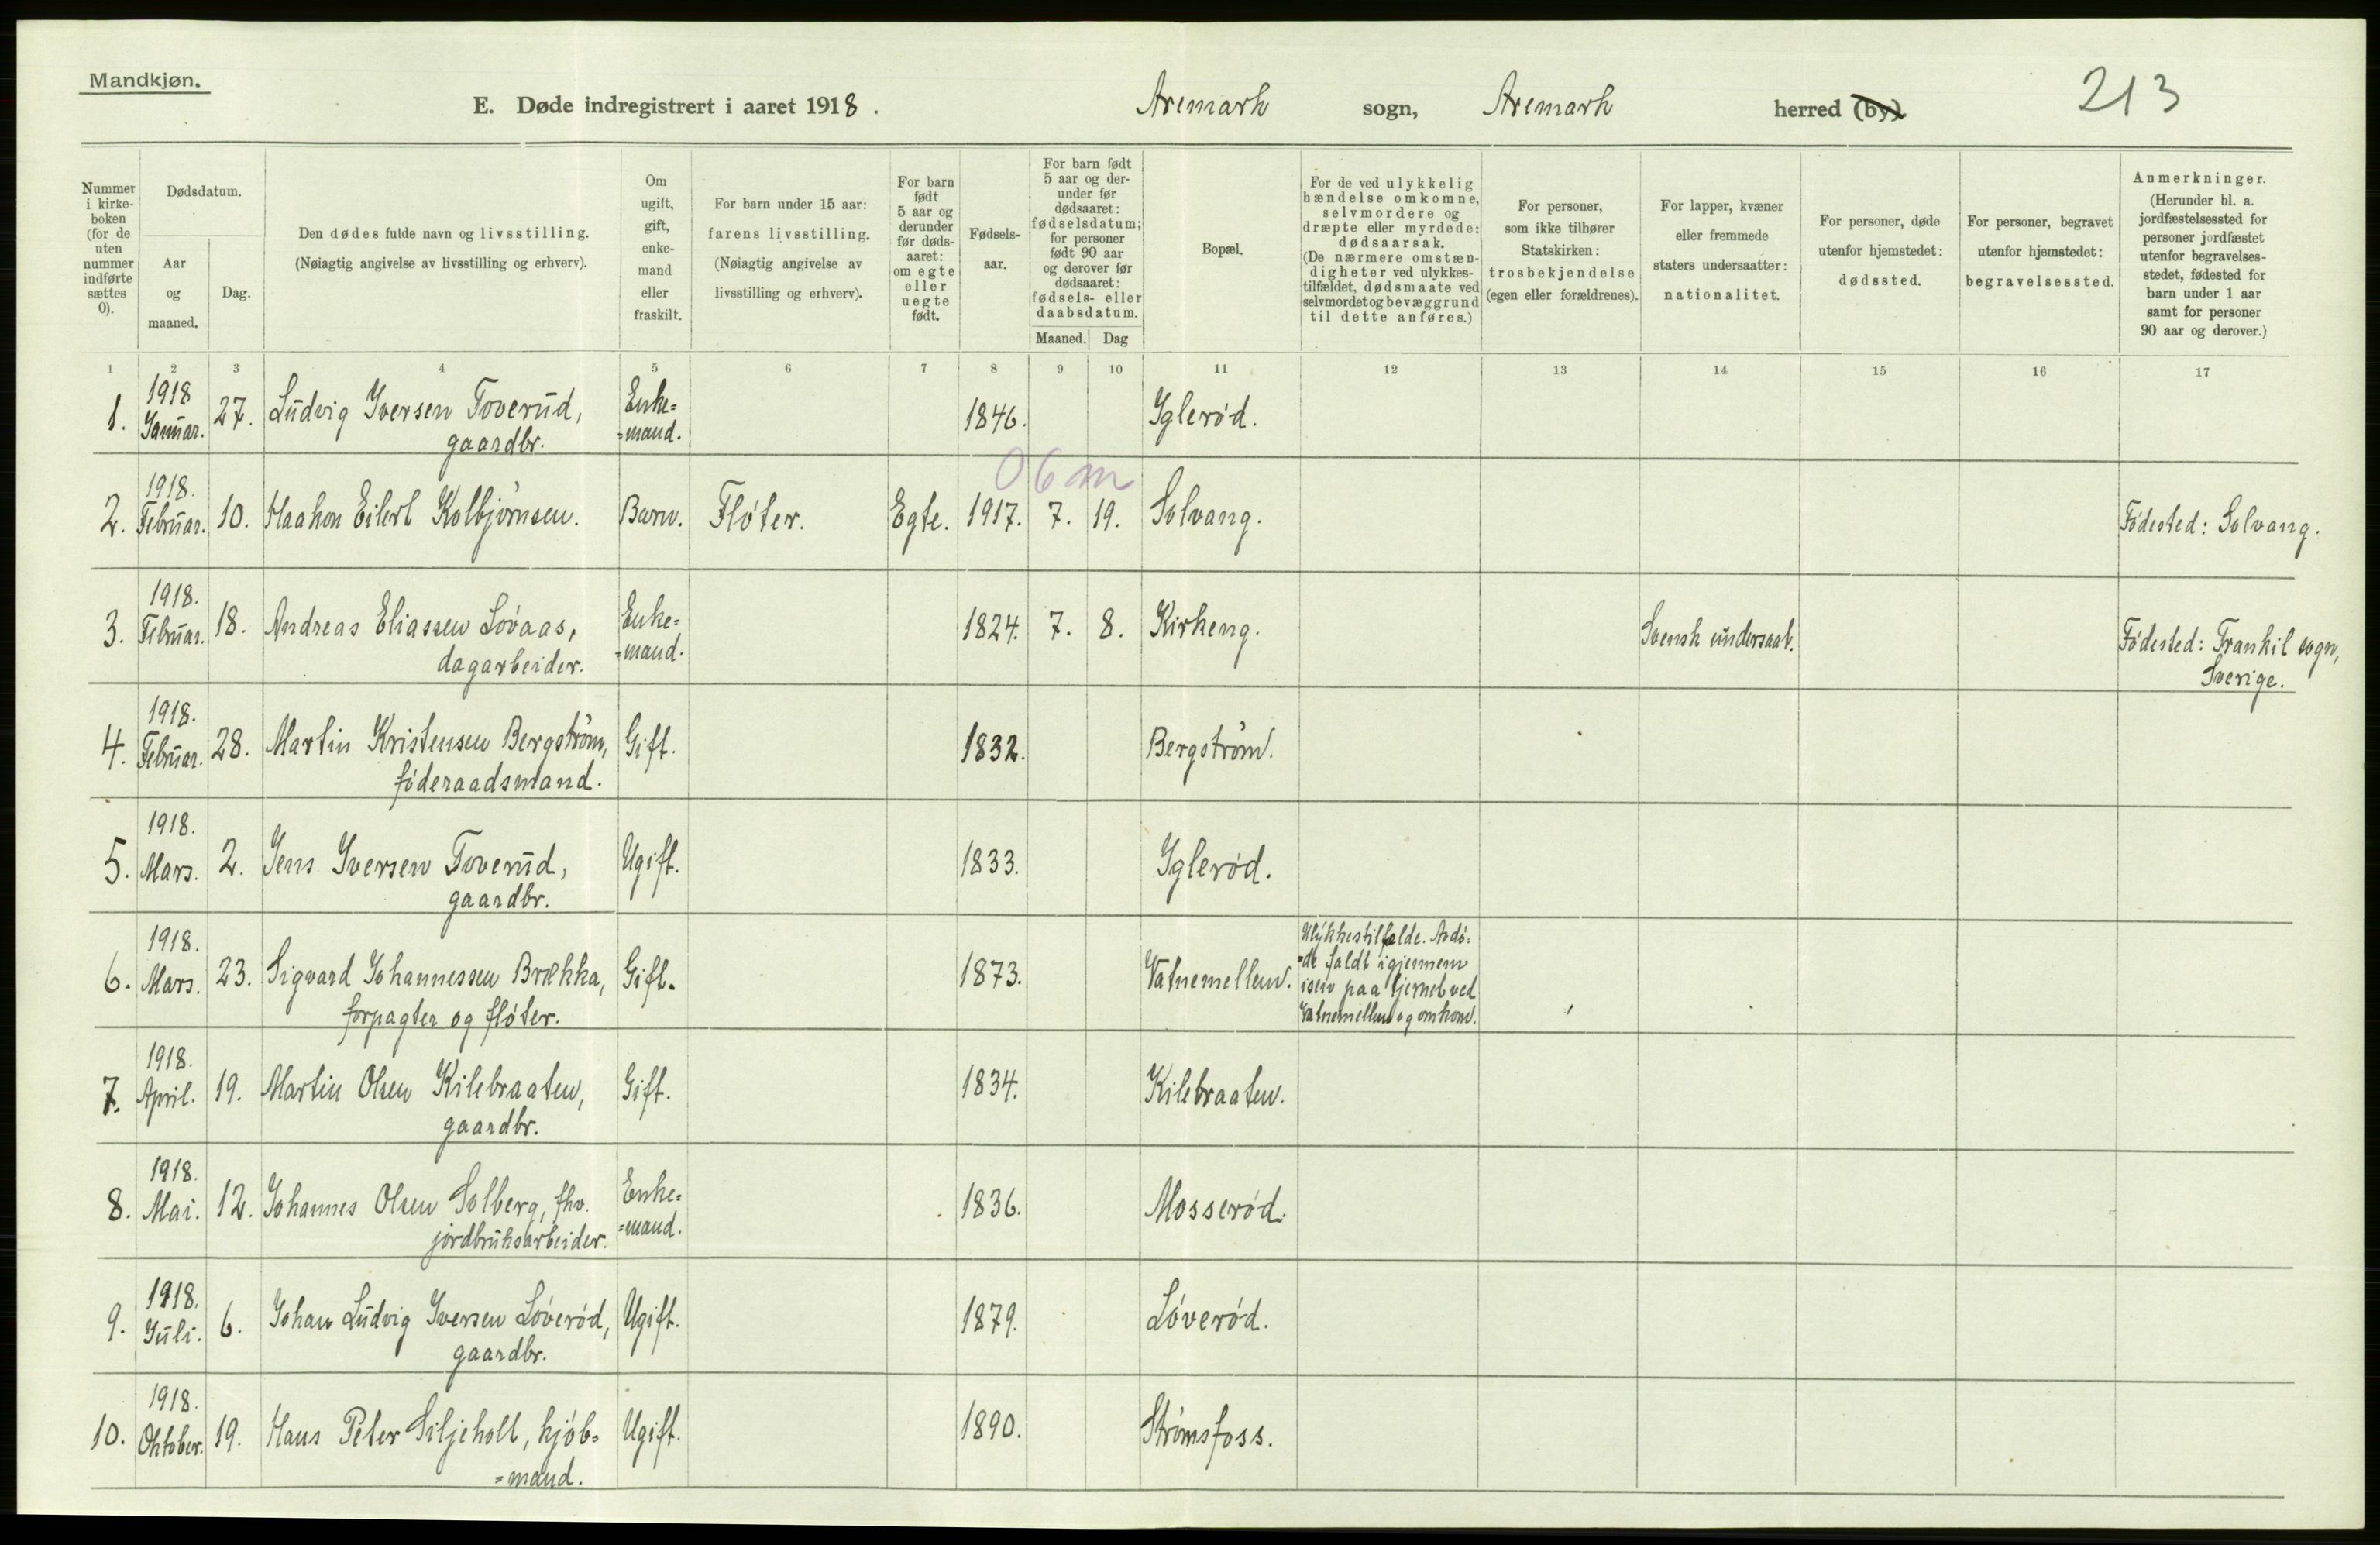 Mandkjøn.
E. Døde indregistrert i aaret 1918.
Aremark sogn, Aremark herred (by).
213
Nummer i kirke-boken (for de uten nummer indførte sættes 0).
Dødsdatum.
Aar og maaned.
Dag.
Den dødes fulde navn og livsstilling.
(Nøiagtig angivelse av livsstilling og erhverv).
Om ugift, gift, enke-mand eller fraskilt.
For barn under 15 aar: farens livsstilling.
(Nøiagtig angivelse av livsstilling og erhverv).
For barn født 5 aar og derunder før døds-aaret: om egte eller uegte født.
Fødsels-aar.
For barn født 5 aar og der-under før dødsaaret: fødselsdatum; for personer født 90 aar og derover før dødsaaret: fødsels- eller daabsdatum.
Maaned. Dag
Bopæl.
For de ved ulykkelig hændelse omkomne, selvmordere og dræpte eller myrdede: dødsaarsak.
(De nærmere omstæn-digheter ved ulykkes-tilfældet, dødsmaate ved selvmordet og bevæggrund til dette anføres.)
For personer, som ikke tilhører Statskirken: trosbekjendelse (egen eller forældrenes).
For lapper, kvæner eller fremmede staters undersaatter: nationalitet.
For personer, døde utenfor hjemstedet: dødssted.
For personer, begravet utenfor hjemstedet: begravelsessted.
Anmerkninger.
(Herunder bl. a. jordfæstelsessted for personer jordfæstet utenfor begravelses-stedet, fødested for barn under 1 aar samt for personer 90 aar og derover.)
1 2 3 4 5 6 7 8 9 10 11 12 13 14 15 16 17
1. 1918 Januar. 27. Ludvig Iversen Toverud, Enke= 1846. Iglerød.
gaardbr. =mand.
06 m
2. 1918. Februar. 10. Haakon Eilert Kolbjörnsen. Barn. Fløter. Egte. 1917. 7. 19. Solvang. Fødested: Solvang.
3. 1918. Februar. 18. Andreas Eliassen Løvaas, Enke= 1824. 7. 8. Kirkeng. Svensk undersaat. Fødested: Trankil sogn,
dagarbeider. =mand. Sverige.
4. 1918. Februar. 28. Martin Kristensen Bergström, Gift. 1832. Bergström.
føderaadsmand.
5. 1918. Mars. 2. Jens Iversen Toverud, Ugift. 1833. Iglerød.
gaardbr.
6. 1918. Mars. 23. Sigvard Johannessen Brækka, Gift. 1873. Vatnemellem. Ulykkestilfælde. Avdø=
=de faldt igjennem
isen paa tjernet ved
Vatnemellem og omkom.
forpagter og fløter.
7. 1918. April. 19. Martin Olsen Kilebraaten, Gift. 1834. Kilebraaten.
gaardbr.
8. 1918. Mai. 12. Johannes Olsen Solberg, fhv. Enke= 1836. Mosserød.
jordbruksarbeider. =mand.
9. 1918. Juli. 6. Johan Ludvig Iversen Løverød, Ugift. 1879. Løverød.
gaardbr.
10. 1918. Oktober. 19. Hans Peter Siljeholt, kjøb= Ugift. 1890. Strømsfoss.
=mand.